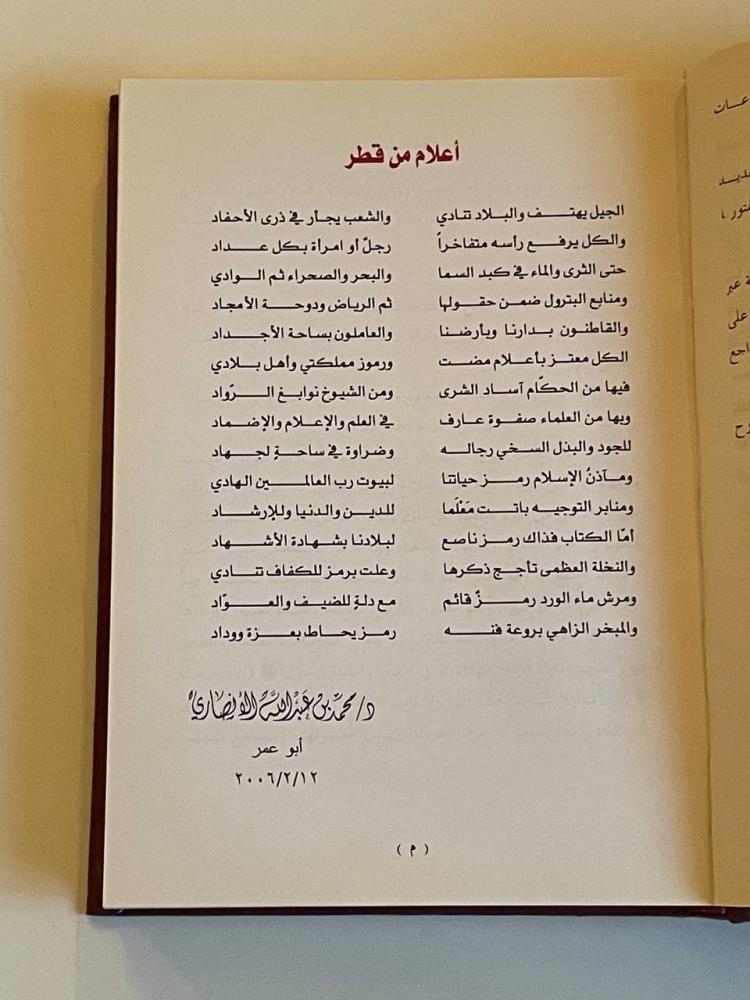 أعلام من قطر
الجيل يهتف والبلاد تنادي والشعب يجأر في ذرى الأحفاد
والكل يرفع رأسه متفاخراً رجلٌ أو امرأة بكل عداد
حتى الثرى والماء في كبد السما والبحر والصحراء ثم الوادي
ومنابع البترول ضمن حقولها ثم الرياض ودوحة الأمجاد
والقاطنون بدارنا وبأرضنا والعاملون بساحة الأجداد
الكل معتز بأعلام مضت ورموز مملكتي وأهل بلادي
فيها من الحكّام آساد الشرى ومن الشيوخ نوابغ الرّواد
وبها من العلماء صفوة عارف في العلم والإعلام والإضماد
للجود والبذل السخي رجاله وضراوة في ساحةٍ لجهاد
ومآذنُ الإسلام رمز حياتنا لبيوت رب العالمين الهادي
ومنابر التوجيه باتت مَعْلَما للدين والدنيا وللإرشاد
أمّا الكتاب فذاك رمز ناصع لبلادنا بشهادة الأشهاد
والنخلة العظمى تأجج ذكرها وعلت برمز للكفاف تنادي
ومرش ماء الورد رمزٌ قائم مع دلةٍ للضيف والعوّاد
والمبخر الزاهي بروعة فنه رمز يحاط بعزة ووداد
د/محمد بن عبدالله الأنصاري
أبو عمر
٢٠٠٦/٢/١٢
( م )
عات
عديد
عبر
على
اجع